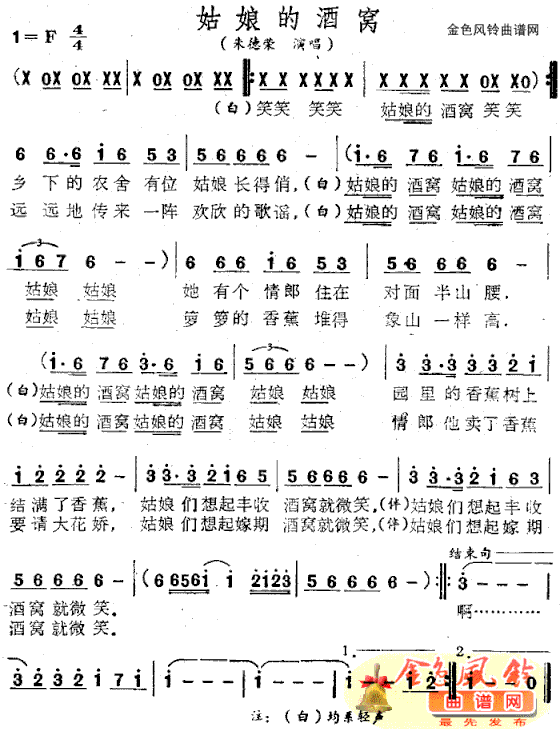 姑娘的酒窝
1=F 4/4
(朱德荣 演唱)
金色风铃曲谱网
(X XX OX OX OX XX :X XX XXXX X·X XX X OX OX)
(白)笑笑 笑笑 姑娘的 酒窝 笑笑
6 6 6·6 i 6 5 3 5 6 6 6 6 6 - (i·6 7 6 i·6 7 6
乡下的农舍有位 姑娘长得俏,(白)姑娘的酒窝 姑娘的酒窝
远远地传来一阵 欢欣的歌谣,(白)姑娘的酒窝 姑娘的酒窝
3
i 6 7 6 - -) 6 6 6 i 6 5 3 5·6 6 6 6 -
姑娘 姑娘 她有个情郎住在 对面半山腰.
姑娘 姑娘 箩箩的香蕉堆得 象山一样高.
3
(i·6 7 6 3·6 i 6 5 6 6 6 - -) 3 3·3 3 3 2 i
(白)姑娘的酒窝姑娘的酒窝 姑娘 姑娘 园里的香蕉树上
(白)姑娘的酒窝姑娘的酒窝 姑娘 姑娘 情郎他卖了香蕉
i 2 2 2 2 - 3 3·3 2 i 6 5 5 6 6 6 6 - 3 3·3 2 i 6 3
结满了香蕉, 姑娘们想起丰收 酒窝就微笑,(伴)姑娘们想起丰收
要请大花娇, 姑娘们想起嫁期 酒窝就微笑,(伴)姑娘们想起嫁期
结束句
5 6 6 6 6 - (6 6561 i i 2123 5 6 6 6 6 -) : 3 - - -
酒窝就微笑. 啊…………
酒窝就微笑.
1. 2.
3 2 3 2 i 7 i i - - - i - - - i - - i 2 : i - - 0
金色风铃
曲谱网
最先发布
注:(白)均系轻声